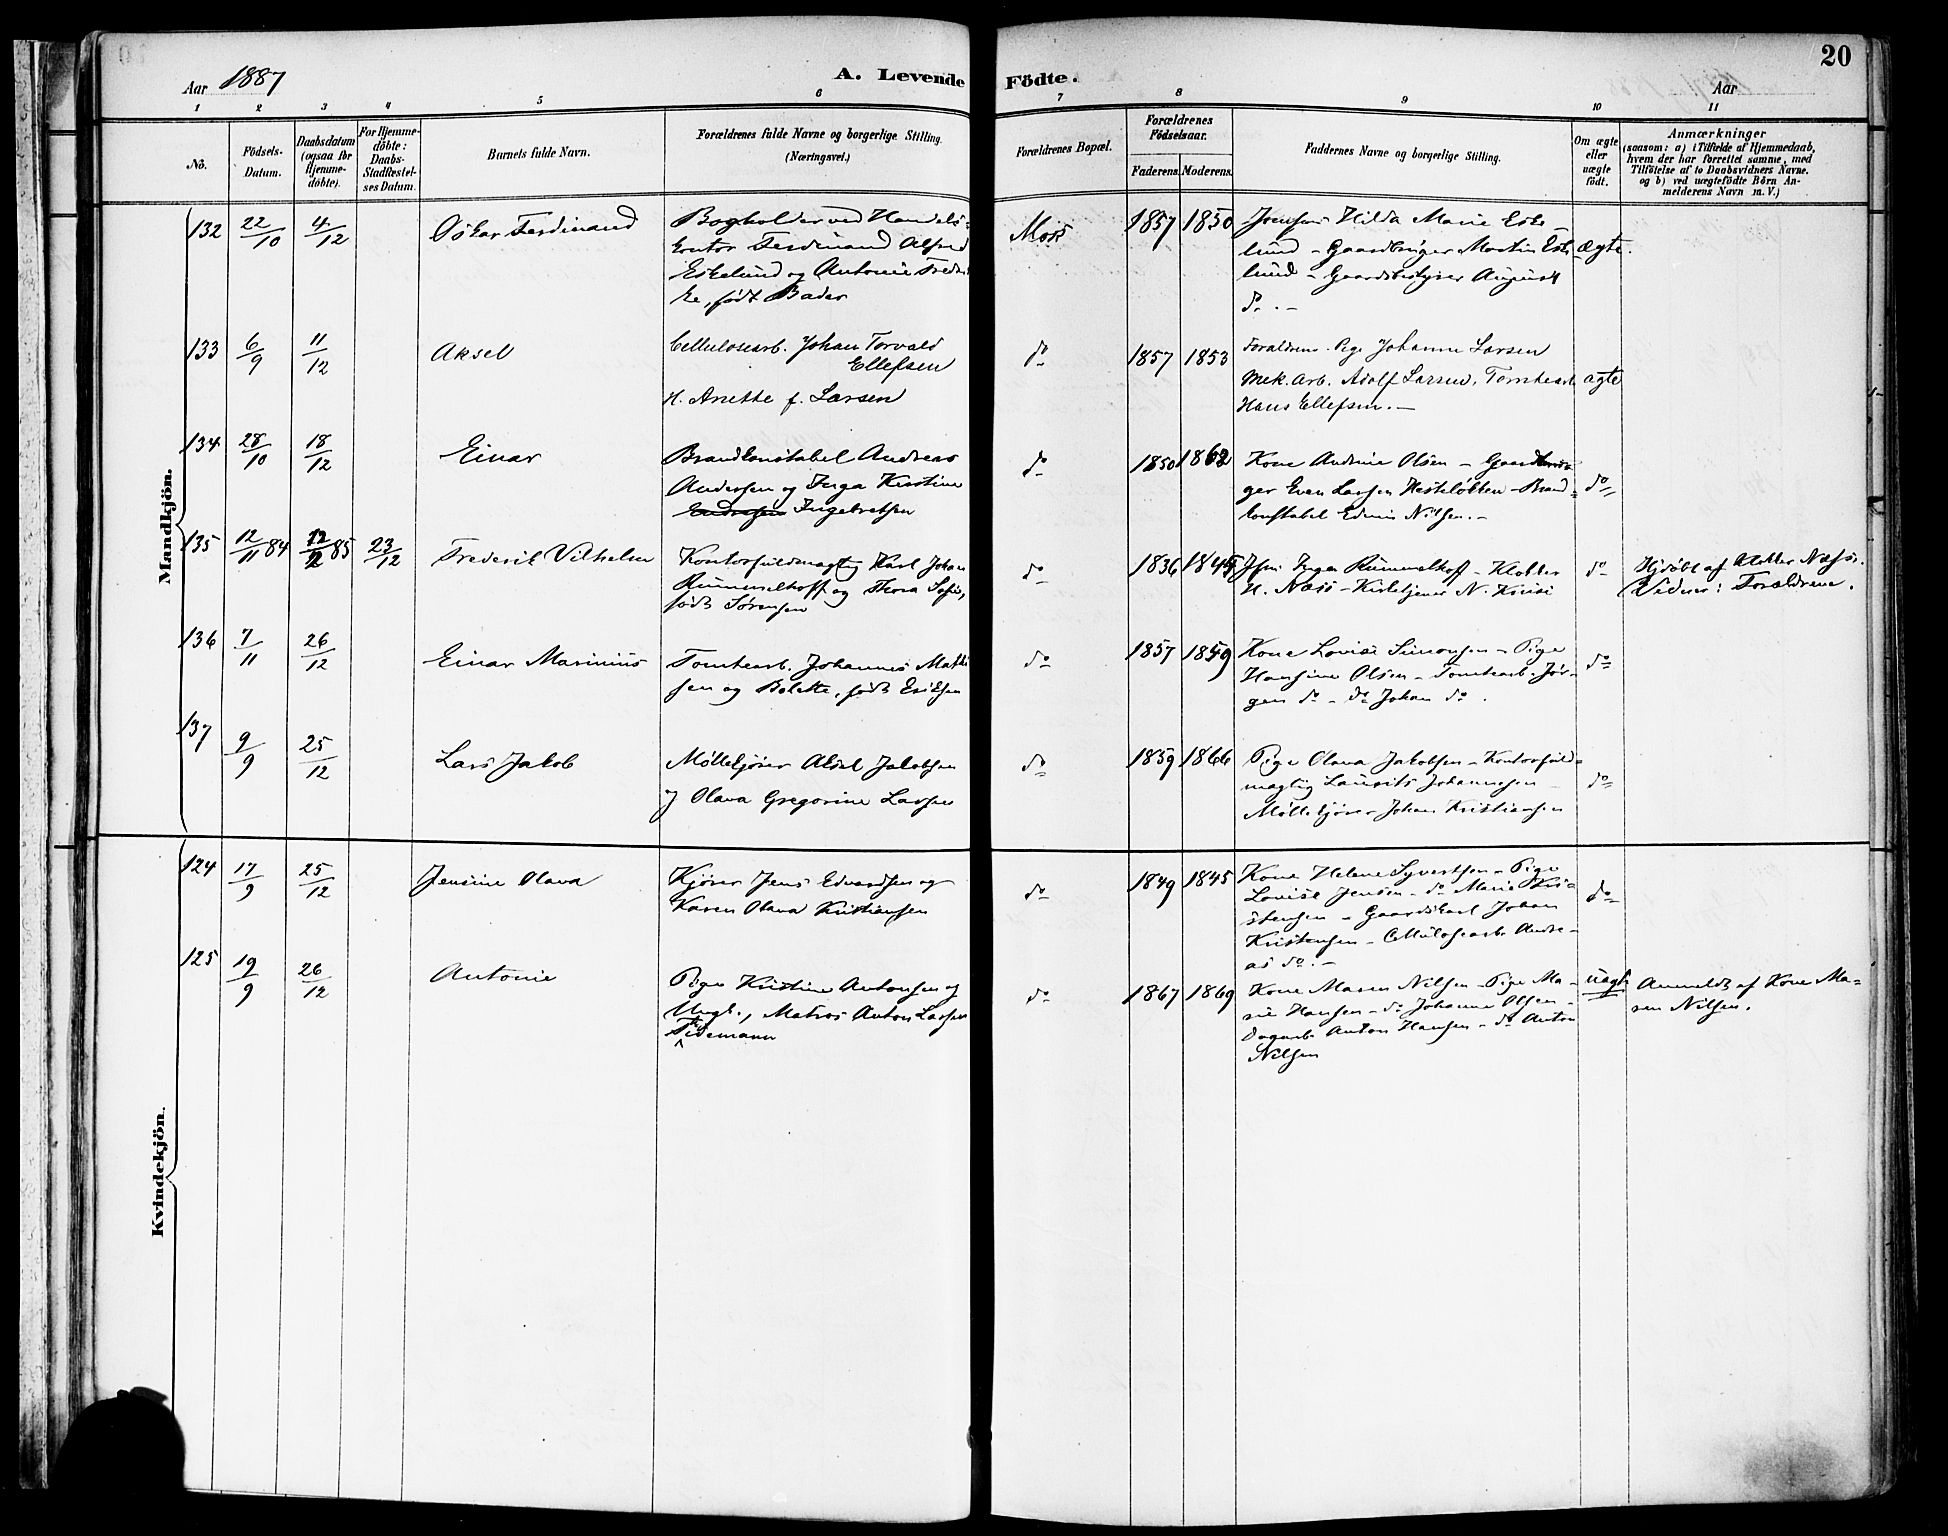 20
Aar 1887
A. Levende Födte.
Aar
1 2 3 4 5 6 7 8 9 10 11
No.
Födsels-
Datum.
Daabsdatum
(ogsaa for
Hjemme-
döbte).
For Hjemme-
döbte:
Daabs-
Stadfæstel-
ses Datum.
Barnets fulde Navn.
Forældrenes fulde Navne og borgerlige Stilling.
(Næringsvei.)
Forældrenes Bopæl.
Forældrenes
Födselsaar.
Faderens. Moderens.
Faddernes Navne og borgerlige Stilling.
Om ægte
eller
uægte
født.
Anmærkninger
(saasom: a) i Tilfælde af Hjemmedaab,
hvem der har forrettet samme, med
Tilföielse af to Daabsvidners Navne.
og b) ved uægtefödte Börn An-
melderens Navn m. V.)
Mandkjön.
132 22/10 4/12 Oskar Ferdinand
Bogholder ved Handels-
kontor Ferdinand Alfred
Eskelund og Antonie Fredri
ke, født Bader
Moss 1857 1850
Hilda Marie Eske-
lund - Gaardbruger Martin Eske
lund - Gaardsbestyrer August
do. -
ægte.
133 6/9 11/12 Aksel
Cellulosearb. Johan Torvald
Ellefsen
H. Anette f. Larsen
do 1857 1853
Forældrene. Pige Johanne Larsen
Mek. Arb. Adolf Larsen, Tomtearb.
Hans Ellefsen. -
ægte
134 28/10 18/12 Einar
Brandkonstabel Andreas
Andersen og Inga Kristine
Ingebretsen
do 1850 1862
Kone Andrine Olsen - Gaardbru-
ger Even Larsen Hesteløkken - Brand-
konstabel Edvin Nilsen. -
do
135 12/11 84 12/2 85 23/12 Frederik Vilhelm
Kontorfuldmægtig Karl Johan
Rummelhoff og Thora Sofie,
født Sørensen
do 1836 1845
Jfru Inga Rummelhoff - Klokker
H. Næss - Kirketjener N. Kruse
do
Hjdøbt af Klokker Næss.
Vidner: Forældrene.
136 7/11 26/12 Einar Marinius
Tomtearb. Johannes Mathi
sen og Bolette, født Eriksen
do 1857 1859
Kone Lovise Simonsen - Pige
Hansine Olsen - Tomtearb. Jør-
gen do - do Johan do.
do
137 9/9 25/12 Lars Jakob
Møllekjører Aksel Jakobsen
og Olava Gregorine Larsen
do 1859 1866
Pige Olava Jakobsen - Kontorfuld-
mægtig Laurits Johannesen -
Møllekjører Johan Kristiansen
do
Kvindekjön.
124 17/9 25/12 Jensine Olava
Kjører Jens Edvardsen og
Karen Olava Kristiansen
do 1849 1845
Kone Helene Syvertsen - Pige
Lovise Jensen - do Marie Kri-
stensen - Gaardskarl Johan
Kristensen - Cellulosearb. Andre-
as do. -
do
125 19/9 26/12 Antonie
Pige Kristine Antonsen og
Ungk., Matros Anton Larsen
Tidemann
do 1867 1869
Kone Maren Nilsen - Pige Ma-
rie Hansen - do Johanne Olsen -
Dagarb. Anton Hansen - do Anton
Nilsen
uægte
Anmeldt af Kone Ma-
ren Nilsen.